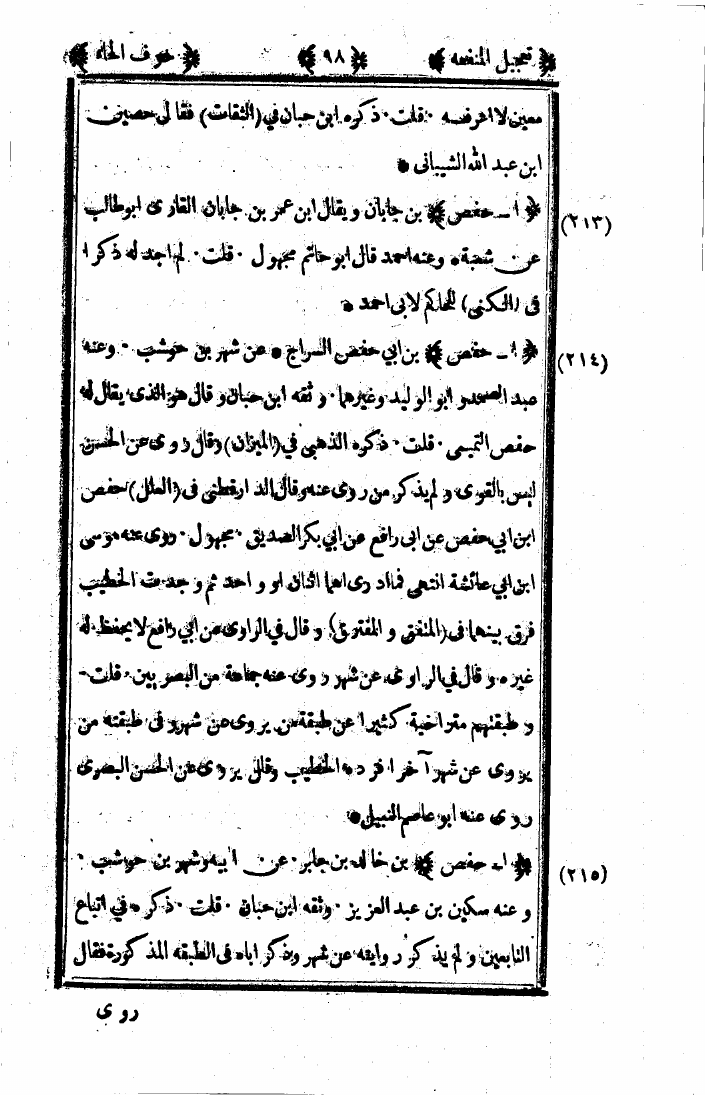 ﴿ تعجيل المنفعه ﴾ ﴿ ٩٨ ﴾ ﴿ حرف الحاء ﴾
معين لا اعرفه . قلت . ذكره ابن حبان في (الثقات) فقال حصين
ابن عبد الله الشيبانى *
(٢١٣) ﴿ ا ــ حفص ﴾ بن جابان ويقال ابن عمر بن جابان القارى ابو طالب
عن شعبة * وعنه احمد قال ابو حاتم مجهول . قلت . لم اجد له ذكرا
فى (الكنى) للحاكم لابى احمد *
(٢١٤) ﴿ ا ــ حفص ﴾ بن ابي حفص السراج * عن شهر بن حوشب . وعنه
عبد الصمد و ابو الوليد وغيرهما . وثقه ابن حبان و قال هو الذى يقال له
حفص التميمى . قلت . ذكره الذهبي في (الميزان) وقال روى عن الحسن
ليس بالقوى و لم يذكر من روى عنه وقال الدارقطنى فى (العلل) حفص
ابن ابي حفص عن ابى رافع عن ابي بكر الصديق . مجهول . روى عنه موسى
ابن ابي عائشة انتهى فما ادرى اهما اثنان او و احد ثم و جدت الخطيب
فرق بينهما فى (المتفق و المفترق) و قال في الراوى عن ابي رافع لا يحفظ له
غيره و قال في الراوى عن شهر روى عنه جماعة من البصريين . قلت .
و طبقتهم متراخية كثيرا عن طبقة من يروى عن شهر و فى طبقته من
يروى عن شهر آخر افرده الخطيب وقال يروى عن الحسن البصرى
روى عنه ابو عاصم النبيل *
(٢١٥) ﴿ ا ــ حفص ﴾ بن خالد بن جابر . عن ابيه وشهر بن حوشب .
و عنه سكين بن عبد العزيز . وثقه ابن حبان . قلت . ذكره في اتباع
التابعين و لم يذكر روايته عن شهر وذكر اباه فى الطبقه المذكورة فقال
روى